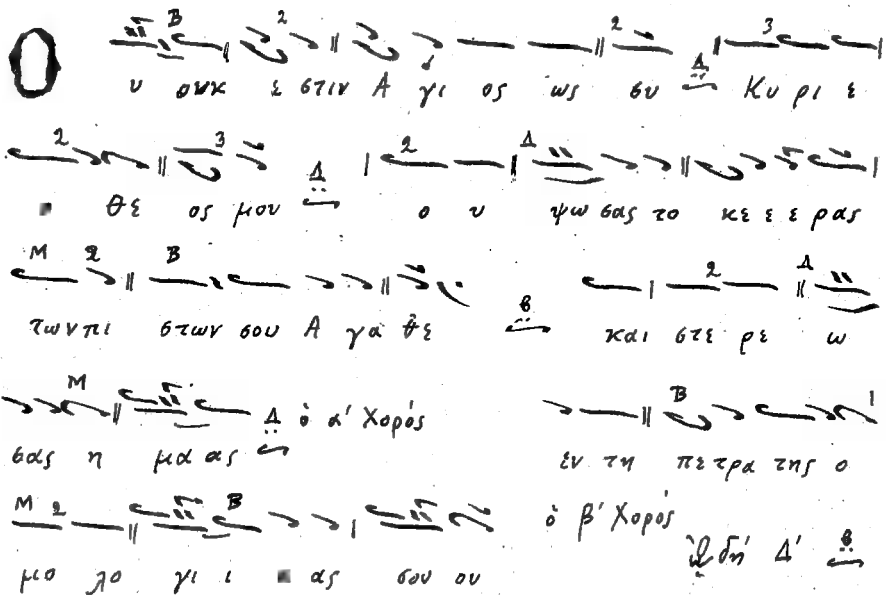 Ο υ ουκ ε στιν Α γι ος ως συ Κυ ρι ε
θε ος μου ο υ ψω σας το κε ε ε ρας
των πι στων σου Α γα θε και στε ρε ω
σας η μα ας ὁ α' Χορός εν τη πε τρα της ο
μο λο γι ι ας σου ου ὁ β' Χορός ᾨδή Δ'